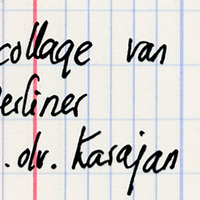 collage van
Berliner
. olv. Karajan